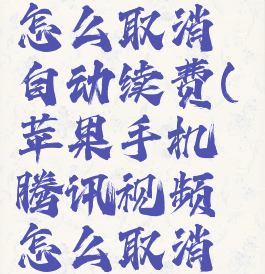 怎么取消
自动续费(
苹果手机
腾讯视频
怎么取消